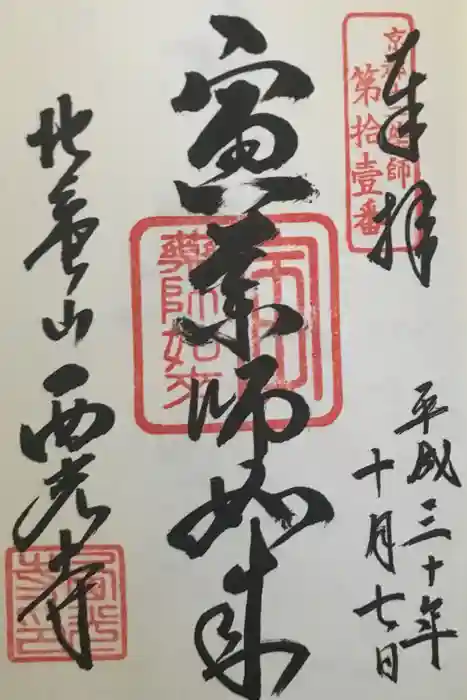 奉拝
京都十二薬師
第拾壹番
平成三十年
十月七日
寅薬師如来
藥師如来
北亀山 西光寺